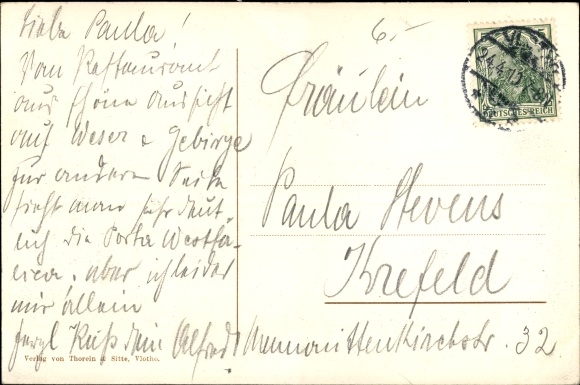 Liebe Paula!
Vom Restaurant
aus schöne Aussicht
auf Weser & Gebirge
zur anderen Seite
sieht man sehr deut-
lich die Porta Westfa-
lica. aber ich leider
nur allein
herzl Kuß dein Alfred
Verlag von Thorein & Sitte, Vlotho.
6.-
DEUTSCHES REICH
Fräulein
Paula Stevens
Krefeld
Mennonittenkirchstr. 32